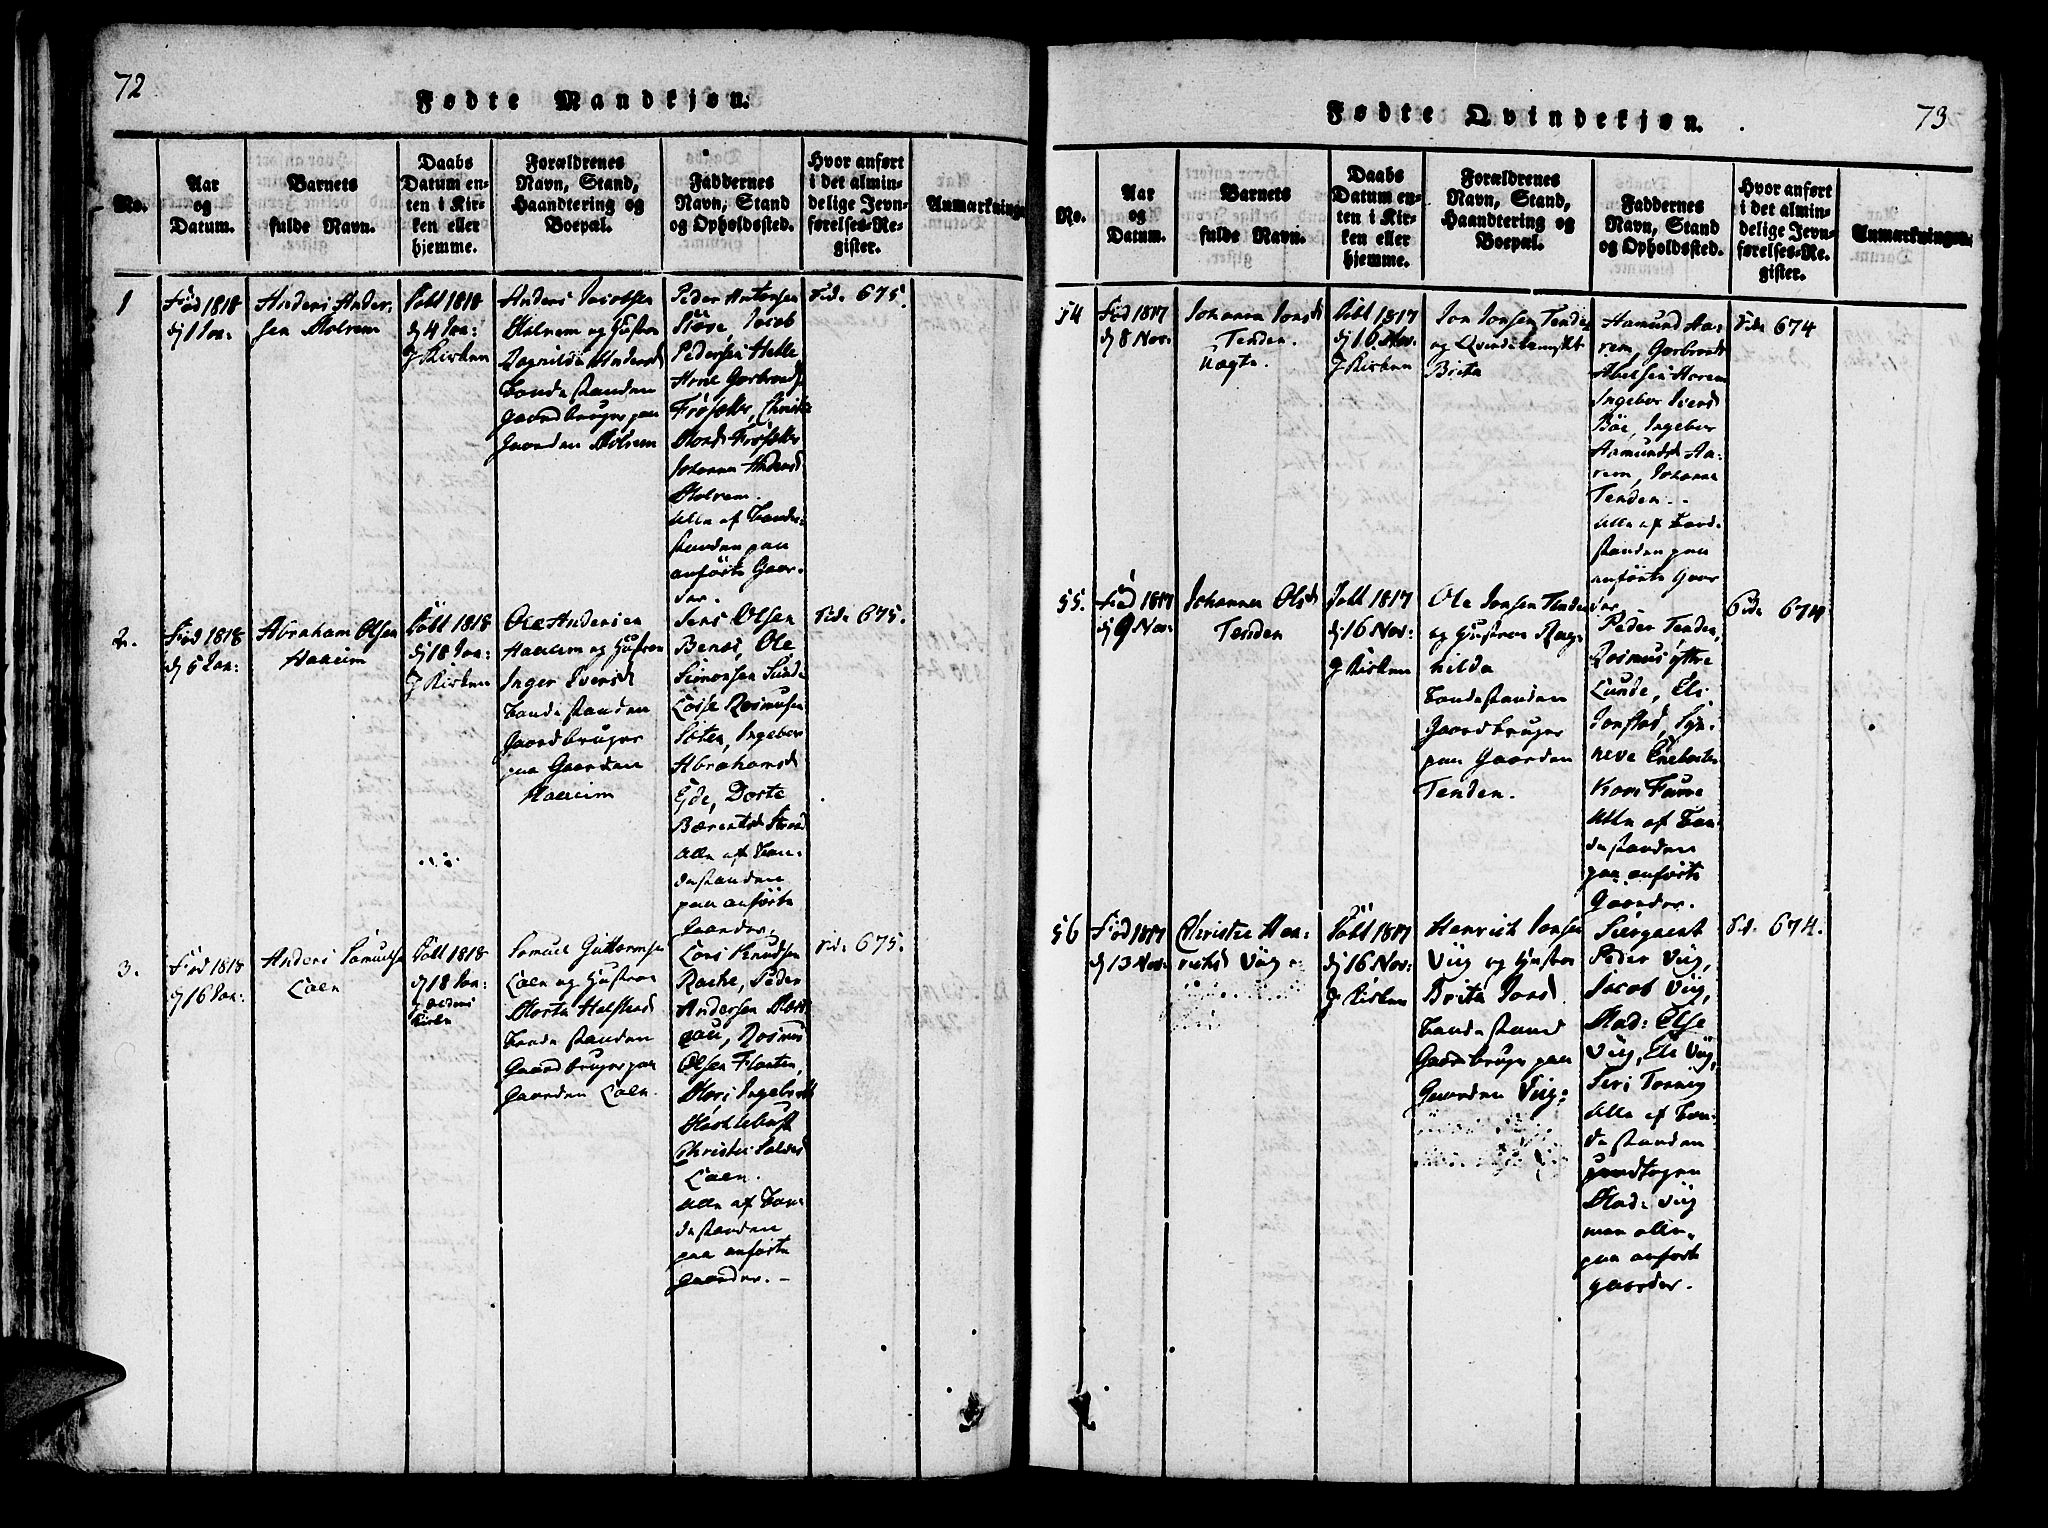 72
Fødte Mandkjøn.
No.
Aar
og
Datum.
Barnets
fulde Navn.
Daabs
Datum en-
ten i Kir-
ken eller
hjemme.
Forældrenes
Navn, Stand,
Haandtering og
Boepæl.
Faddernes
Navn, Stand
og Opholdssted.
Hvor anført
i det almin-
delige Jevn-
førelses-Re-
gister.
Anmærkninger
1
Fød 1818
dj 1 Jan:
Anders Ander-
sen
Døbt 1818
dj 4 Jan:
J Kirken
Anders Jacobsen
og Hustroe
Ragnilda Andersd
Bondestanden
Gaardbruger paa
Gaarden
Peder Antonsen
Jacob
Pedersen
Arne Gerbrands
Johanna Andersd
Alle af Bonde-
standen paa
anførte Gaar-
der.
Side 675.
2.
Fød 1818
dj 5 Jan:
Abraham Olsen
Haaeim
Døbt 1818
dj 18 Jan:
J Kirken
Ole Andersen
Haaeim og Hustroe
Inger Iversd
Bondestanden
Gaardbruger
paa Gaarden
Haaeim
Jens Olsen
Ole
Simonsen Sunde
Rasmusen
Ingebor
Abrahamsd
Eide, Dorte
Bærentsd
Alle af Bon-
destanden
paa anførte
Gaarder.
Side 675.
3.
Fød 1818
dj 16 Jan:
Anders Samuelsen
Loen
Døbt 1818
dj 18 Jan:
Kirke
Samuel Guttormsen
Loen og Hustroe
Marta
Bondestanden
Gaardbruger paa
Gaarden Loen.
Lars Knudsen
Rake, Peder
Andersen
Rasmus
Olsen Flaaten,
Mari Ingebrets
Christie
Loen.
Alle af Bon-
destanden
paa anførte
gaarder. -
Side 675.
73
Fødte Qvindekjøn.
No.
Aar
og
Datum.
Barnets
fulde Navn.
Daabs
Datum en-
ten i Kir-
ken eller
hjemme.
Forældrenes
Navn, Stand,
Haandtering og
Boepæl.
Faddernes
Navn, Stand
og Opholdssted.
Hvor anført
i det almin-
delige Jevn-
førelses-Re-
gister.
Anmærkninger.
54
Fød 1817
dj 8 Nov:
Johanna Jonsd
Tenden.
Uægte.
Døbt 1817
dj 16 Nov:
J Kirken
Jon Jonsen Tenden
og Qvindemennisket
Brita
Aamund Aa-
rem, Gerbrand
Abelsen
Ingebor Iversd
Böe, Ingebor
Aamundsd Aa-
rem, Johanna
Tenden.
Alle af Bond-
standen paa
anførte Gaar
der.
Side 674
55.
Fød 1817
dj 9 Nov:
Johanna Olsd
Tenden
Døbt 1817
dj 16 Nov:
J Kirken
Ole Jonsen Tenden
og Hustroe Rag-
nilda
Bondestanden
Gaardbruger
paa Gaarden
Tenden.
Peder Tenden,
Rasmus Yttre
Lunde, Eli
Syn-
neve
Kari
Alle af Bon-
destanden
paa anførte
Gaarder.
Side 674
56
Fød 1817
dj 13 Nov:
Christie Hen-
richsd Viig
Døbt 1817
dj 16 Nov:
J Kirken
Henrich Jonsen
Viig og Hustroe
Brita Jonsd.
Bondestand
Gaardbruger paa
Gaarden Viig:
Sergeant
Peder Viig,
Jacob Viig,
Mad: Else
Viig, Eli Viig,
Siri Tonnig
Alle af Bon-
destanden
undtagen
Mad: Viig
men alle
paa anførte
gaarder.
Side 674.